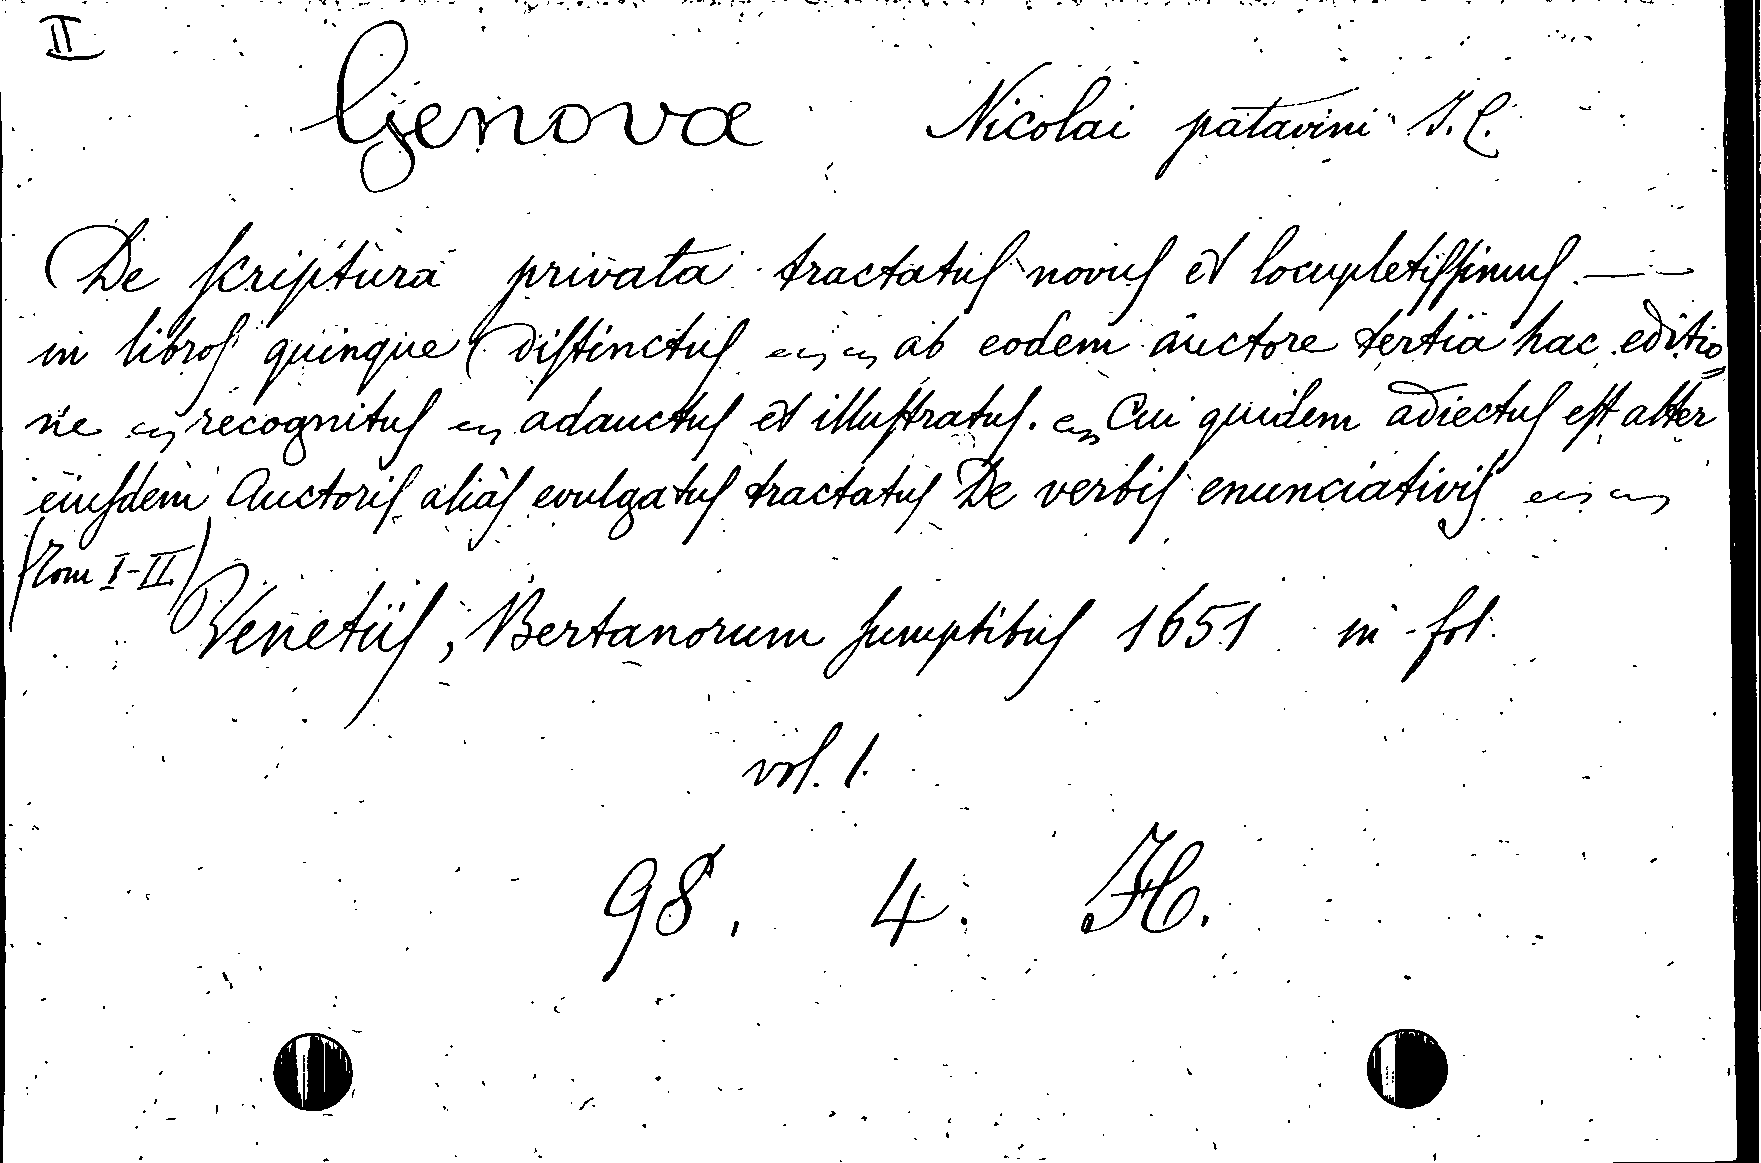 II
Genova Nicolai patavini I. C.
De scriptura privata tractatus novus et locupletissimus. — -
in libros quinque distinctus ~ ~ ab eodem auctore tertia hac editio=
ne ~ recognitus ~ adauctus et illustratus. ~ Cui quidem adiectus est alter
eiusdem Auctoris aliàs evulgatus tractatus De verbis enunciativis ~ ~
(Tom I-II.)
Venetiis, Bertanorum sumptibus 1651 in-fol.
vol. 1.
98. 4. H.